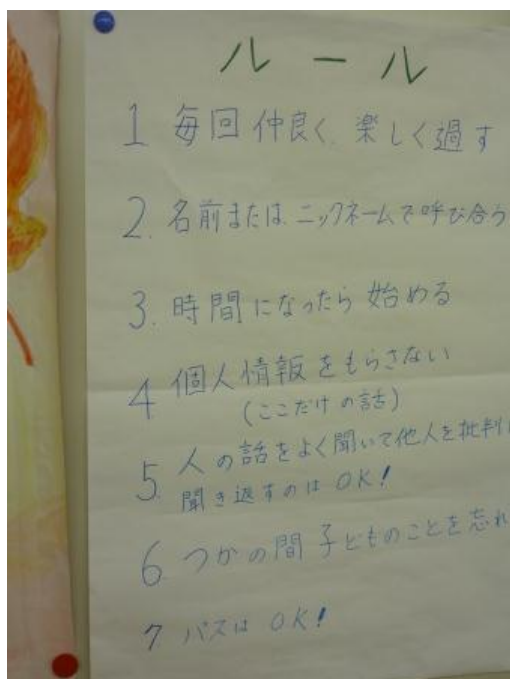 ルール
1 毎回仲良く、楽しく過す
2. 名前または、ニックネームで呼び合う
3. 時間になったら始める
4 個人情報をもらさない
(ここだけの話)
5. 人の話をよく聞いて他人を批判
聞き返すのはOK!
6 つかの間子どものことを忘れ
7 パスはOK!